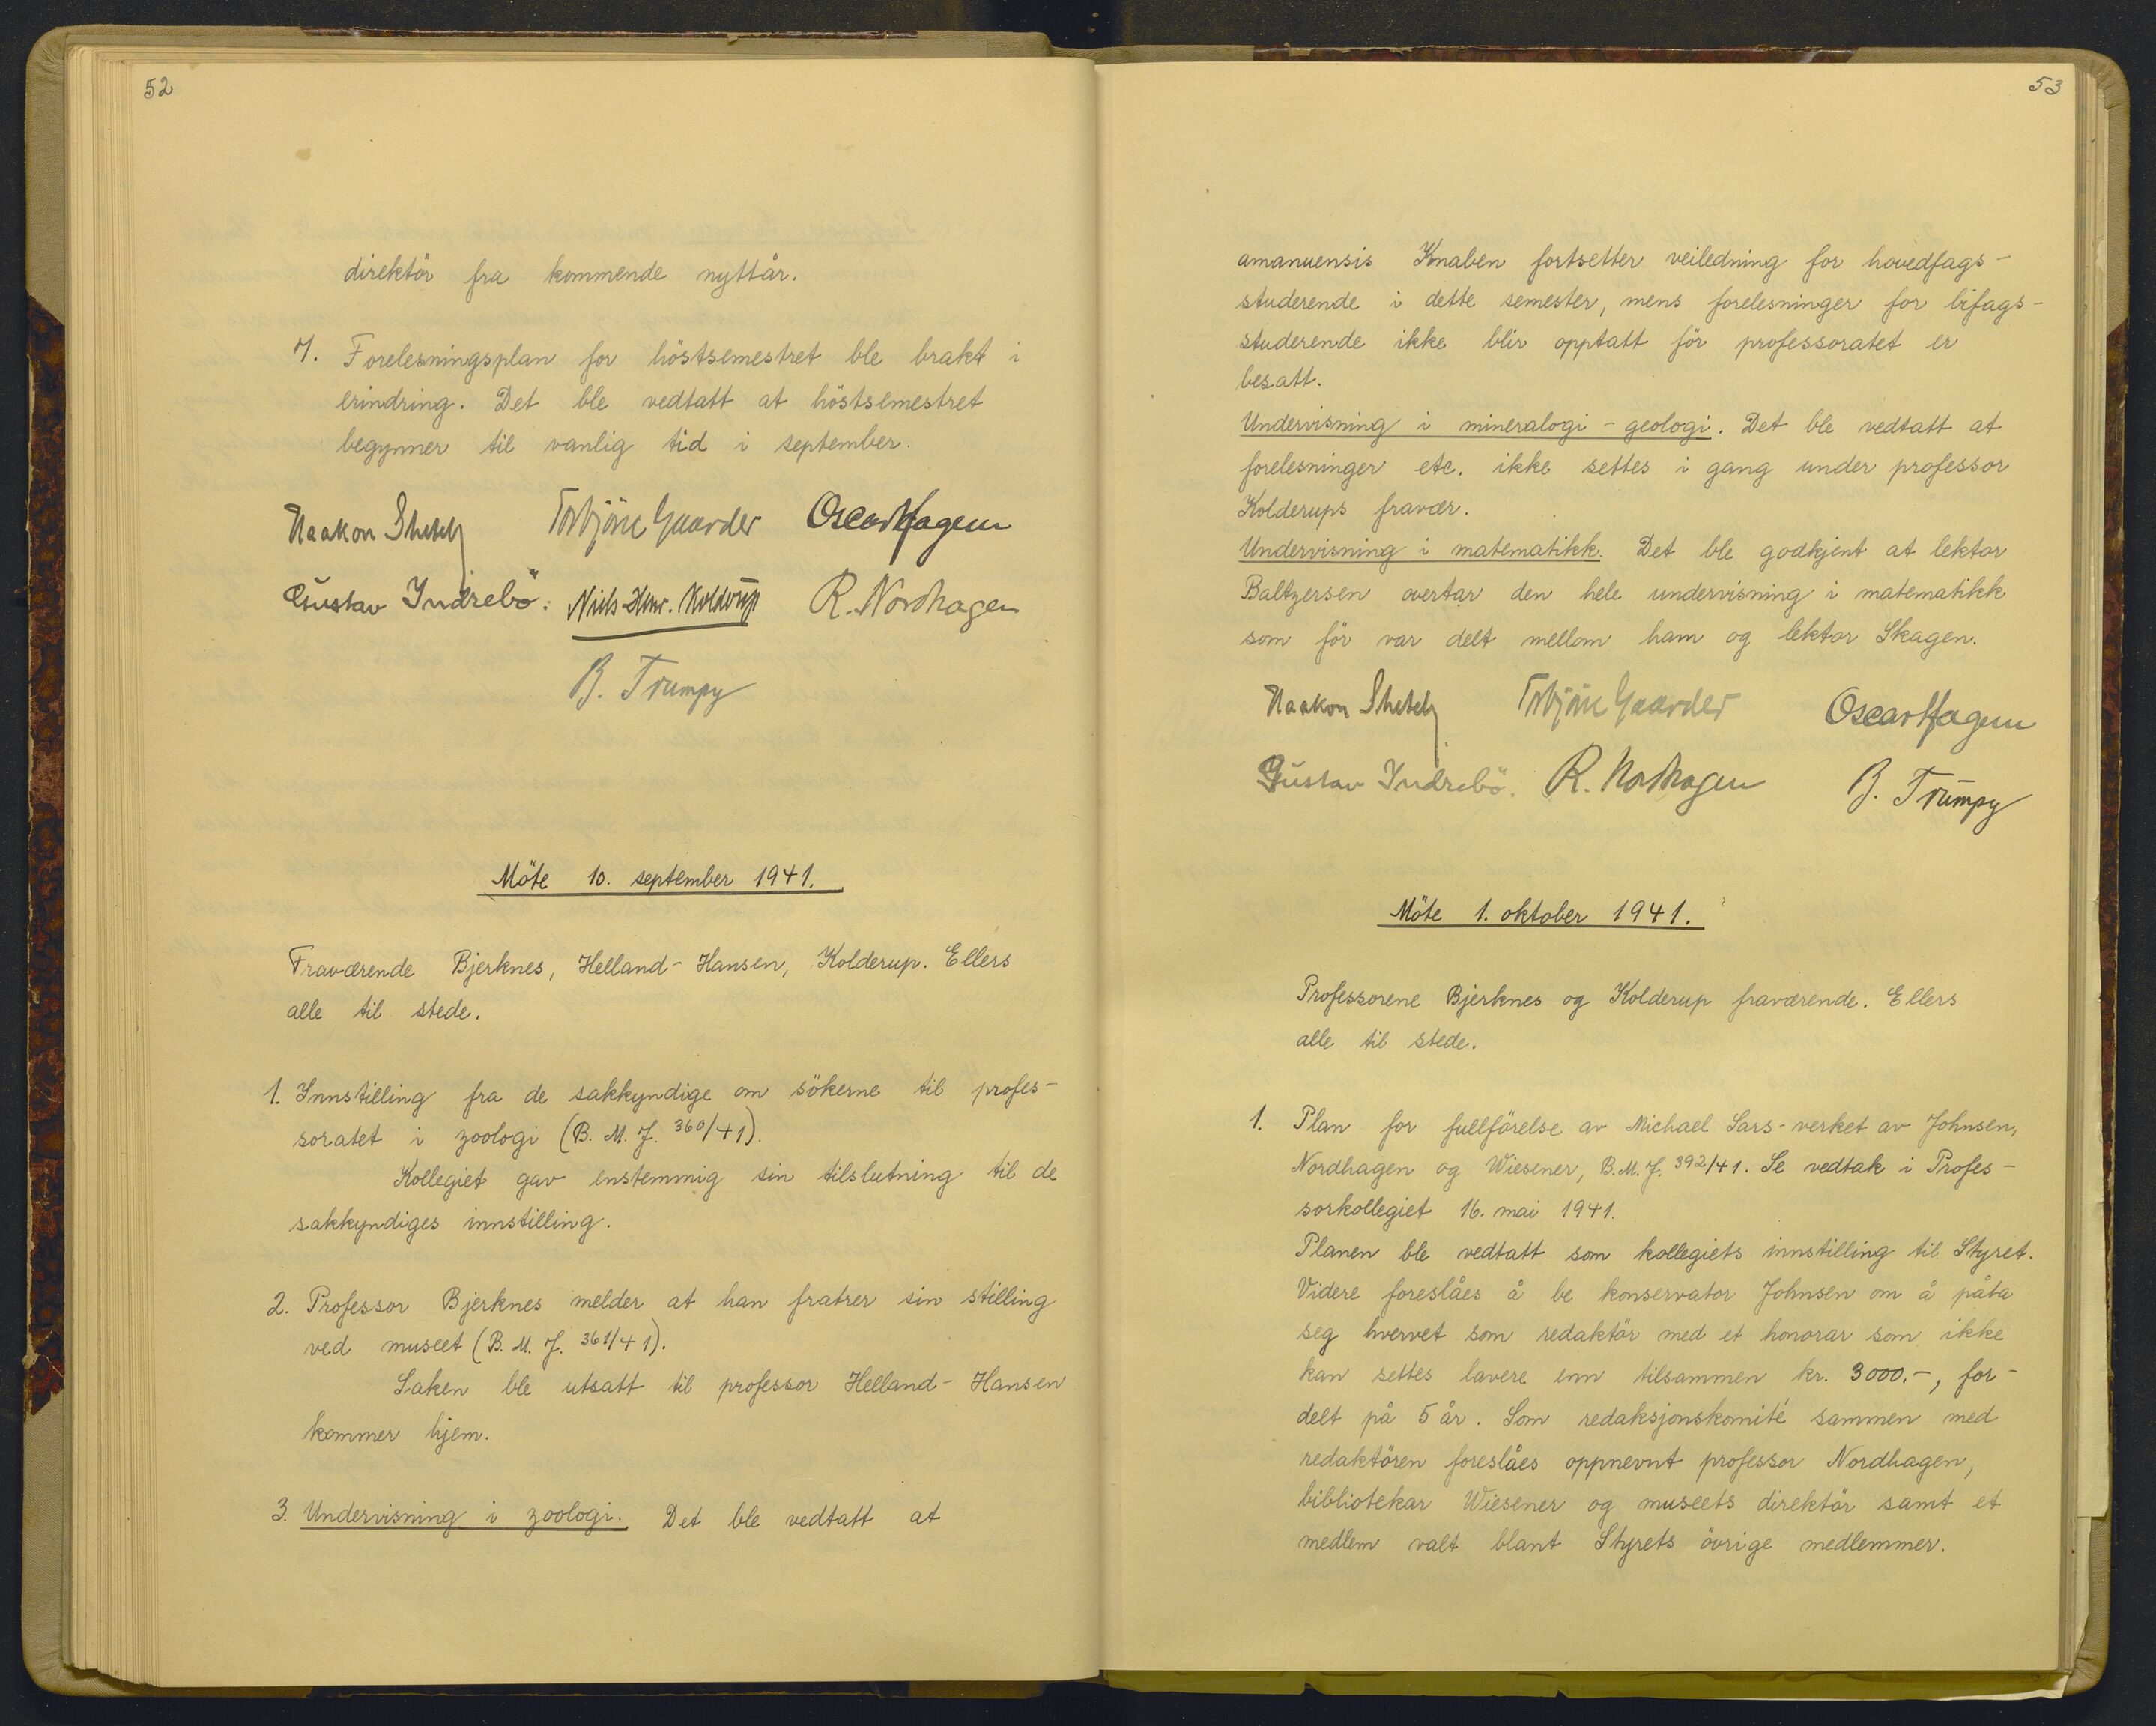 52
direktör fra kommende nyttår.
7. Forelesningsplan for höstsemestret ble brakt i
erindring. Det ble vedtatt at höstsemestret
begynner til vanlig tid i september.
Haakon Shetelig Torbjörn Gaarder Oscar Hagem
Gustav Indrebö. Niels-Henr. Kolderup R. Nordhagen
B. Trumpy
Möte 10. september 1941.
Fraværende Bjerknes, Helland-Hansen, Kolderup. Ellers
alle til stede.
1. Innstilling fra de sakkyndige om sökerne til profes-
soratet i zoologi (B. M. J. 360/41).
Kollegiet gav enstemmig sin tilslutning til de
sakkyndiges innstilling.
2. Professor Bjerknes melder at han fratrer sin stilling
ved museet (B. M. J. 361/41).
Saken ble utsatt til professor Helland-Hansen
kommer hjem.
3. Undervisning i zoologi. Det ble vedtatt at
53
amanuensis Knaben fortsetter veiledning for hovedfags-
studerende i dette semester, mens forelesninger for bifags-
studerende ikke blir opptatt för professoratet er
besatt.
Undervisning i mineralogi - geologi. Det ble vedtatt at
forelesninger etc. ikke settes i gang under professor
Kolderups fravær.
Undervisning i matematikk. Det ble godkjent at lektor
Baltzersen overtar den hele undervisning i matematikk
som för var delt mellom ham og lektor Skagen.
Haakon Shetelig Torbjörn Gaarder Oscar Hagem
Gustav Indrebö. R. Nordhagen B. Trumpy
Möte 1. oktober 1941.
Professorene Bjerknes og Kolderup fraværende. Ellers
alle til stede.
1. Plan for fullförelse av Michael Sars-verket av Johnsen,
Nordhagen og Wiesener, B.M.J. 392/41. Se vedtak i Profes-
sorkollegiet 16. mai 1941.
Planen ble vedtatt som kollegiets innstilling til Styret.
Videre foreslåes å be konservator Johnsen om å påta
seg hvervet som redaktör med et honorar som ikke
kan settes lavere enn tilsammen kr. 3000.-, for-
delt på 5 år. Som redaksjonskomité sammen med
redaktören foreslåes oppnevnt professor Nordhagen,
bibliotekar Wiesener og museets direktör samt et
medlem valt blant Styrets övrige medlemmer.